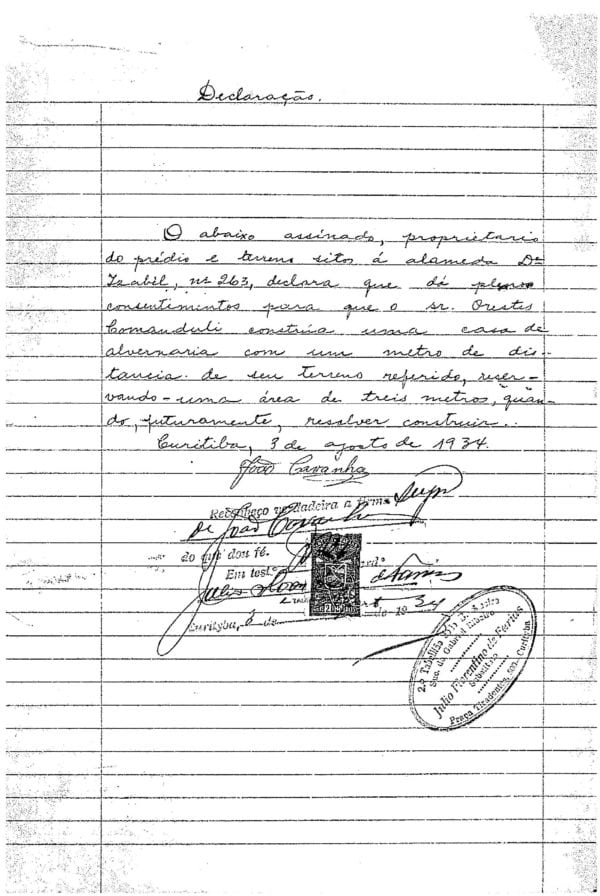 Declaração.
O abaixo assinado, proprietario
do prédio e terreno sitos á alameda Dª
Izabél, nº 263, declara que dá pleno
consentimentos para que o sr. Orestes
Comanduli construa uma casa de
alvernaria com um metro de dis-
tancia de seu terreno referido, reser-
vando-uma área de treis metros, quan-
do, futuramente, resolver construir.
Curitiba, 3 de agosto de 1934.
João Cavanha
Reconheço verdadeira a firma supra
de João Cavanha
do que dou fé.
Em test.º da verd.e
Curityba, 8 de de 1934
2.º Tabellião
Julio Florentino de Farias
Substituto
Praça Tiradentes, Curityba